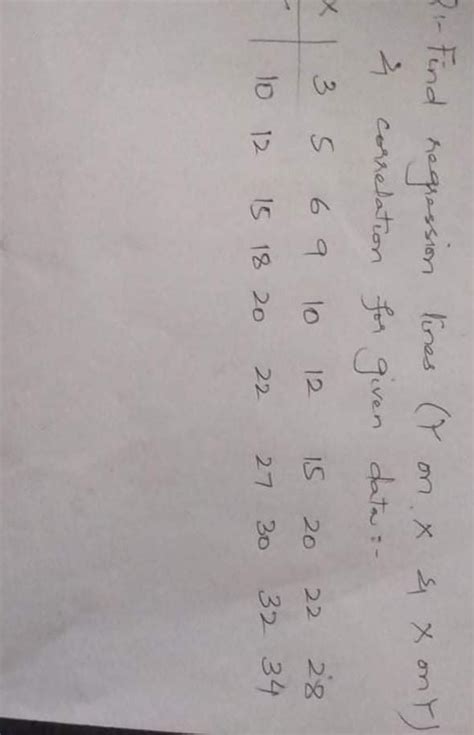 :- Find regression lines (Y on X & X on Y)
& correlation for given data :-
X 3 5 6 9 10 12 15 20 22 28
10 12 15 18 20 22 27 30 32 34